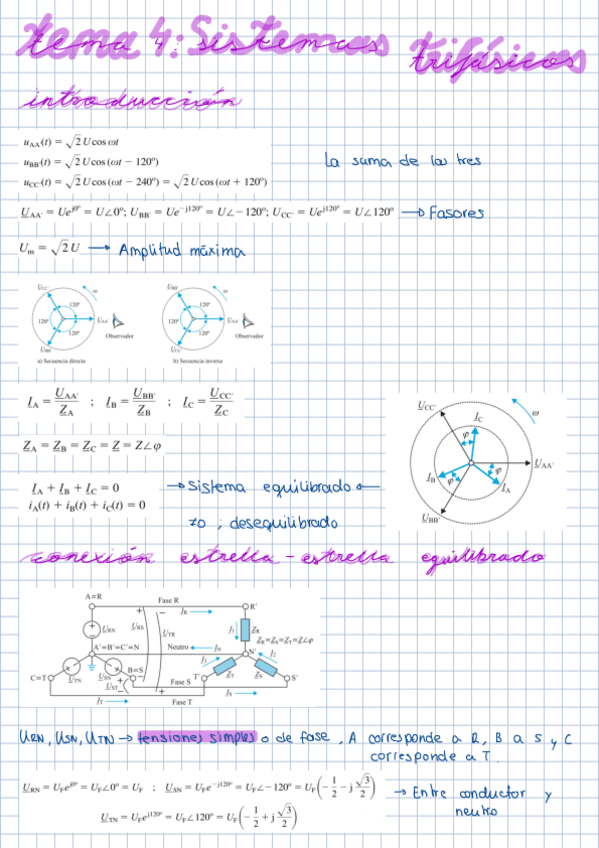 tema 4: Sistemas trifásicos
introducción
u_AA'(t) = √2 U cos ωt
u_BB'(t) = √2 U cos (ωt − 120º)
u_CC'(t) = √2 U cos (ωt − 240º) = √2 U cos (ωt + 120º)
La suma de las tres
U_AA' = Ue^j0º = U∠0º; U_BB' = Ue^−j120º = U∠−120º; U_CC' = Ue^j120º = U∠120º → Fasores
U_m = √2 U → Amplitud máxima
U_CC' ω 120º 120º 120º U_AA' U_BB' Observador
a) Secuencia directa
U_BB' ω 120º 120º 120º U_AA' U_CC' Observador
b) Secuencia inversa
I_A = U_AA' / Z_A ; I_B = U_BB' / Z_B ; I_C = U_CC' / Z_C
Z_A = Z_B = Z_C = Z = Z∠φ
U_CC' I_C ω φ U_AA' I_B φ φ I_A U_BB'
I_A + I_B + I_C = 0
i_A(t) + i_B(t) + i_C(t) = 0
→ Sistema equilibrado ←
≠0 , desequilibrado
conexión estrella - estrella equilibrado
A=R Fase R R'
+ − I_R
U_RN U_RS U_TR I_1 Z_R
Z_R=Z_S=Z_T=Z∠φ
A'=B'=C'=N Neutro I_N N'
C=T U_TN U_SN B=S I_3 I_2
U_ST T' Z_T Z_S S'
Fase S I_S
I_T Fase T
U_RN, U_SN, U_TN → tensiones simples o de fase, A corresponde a R, B a S y C
corresponde a T.
U_RN = U_F e^j0º = U_F∠0º = U_F ; U_SN = U_F e^−j120º = U_F∠−120º = U_F(−1/2 − j √3/2)
→ Entre conductor y
neutro
U_TN = U_F e^j120º = U_F∠120º = U_F(−1/2 + j √3/2)